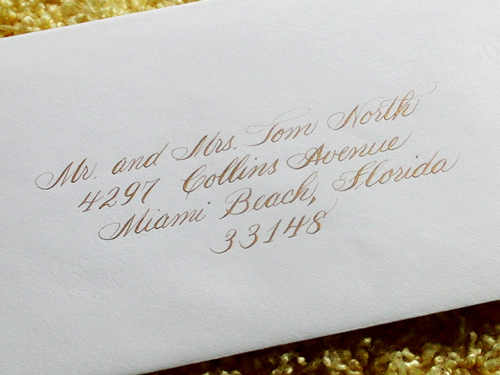 Mr. and Mrs. Tom North
4297 Collins Avenue
Miami Beach, Florida
33148